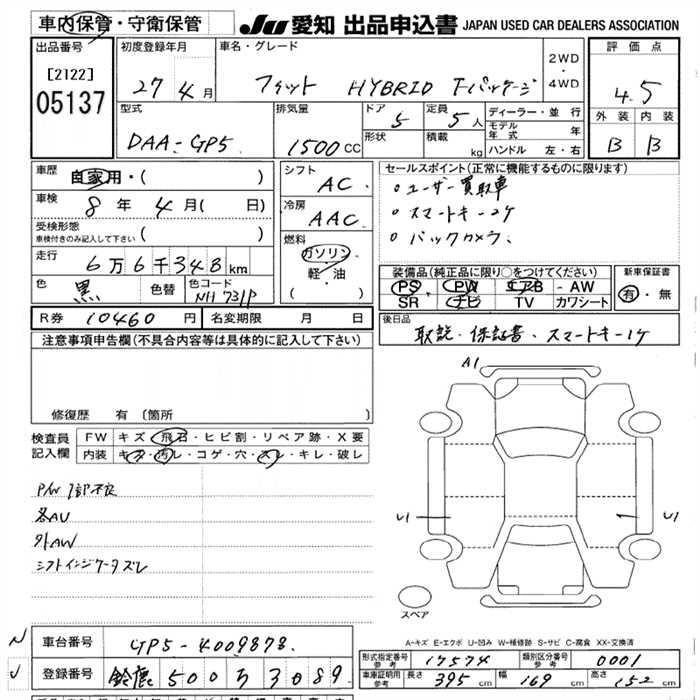 車内保管・守衛保管 JU愛知 出品申込書 JAPAN USED CAR DEALERS ASSOCIATION
出品番号 初度登録年月 車名・グレード 2WD・4WD 評価点
[2122] 27年 4月 フィット HYBRID Fパッケージ 4.5
05137
型式 排気量 ドア 定員 ディーラー・並行 外装 内装
DAA-GP5 1500CC 5 5人 モデル年式 年 B B
形状 積載 kg ハンドル 左・右
車歴 自家用・( ) シフト AC セールスポイント(正常に機能するものに限ります)
車検 8年 4月( 日) 冷房 AAC 。ユーザー買取車
受検形態 車検付きのみ記入して下さい ( ) 。スマートキー2ケ
走行 6万6千348km 燃料 ガソリン 軽・油 ( ) 。バックカメラ、
色 黒 色替 色コード NH731P 装備品(純正品に限り○をつけてください) 新車保証書
PS PW エアB ・AW 有・無
SR ナビ TV カワシート
R券 10460円 名変期限 月 日 後日品
取説・保証書、スマートキー1ケ
注意事項申告欄(不具合内容等は具体的に記入して下さい)
A1
修復歴 有 (箇所
検査員記入欄 FW キズ・飛石・ヒビ割・リペア跡・X要
内装 キズ・汚レ・コゲ・穴・スレ・キレ・破レ
P/W 1部不良
各AU
外AW
シフトインジケータズレ
U1 U1
スペア
A-キズ E-エクボ U-凹み W-補修跡 S-サビ C-腐食 XX-交換済
N 車台番号 GP5-4009873 形式指定番号 参考 17574 類別区分番号 参考 0001
J 登録番号 鈴鹿500ろ3089 車庫証明用 参考 長さ 395cm 幅 169cm 高さ 152cm